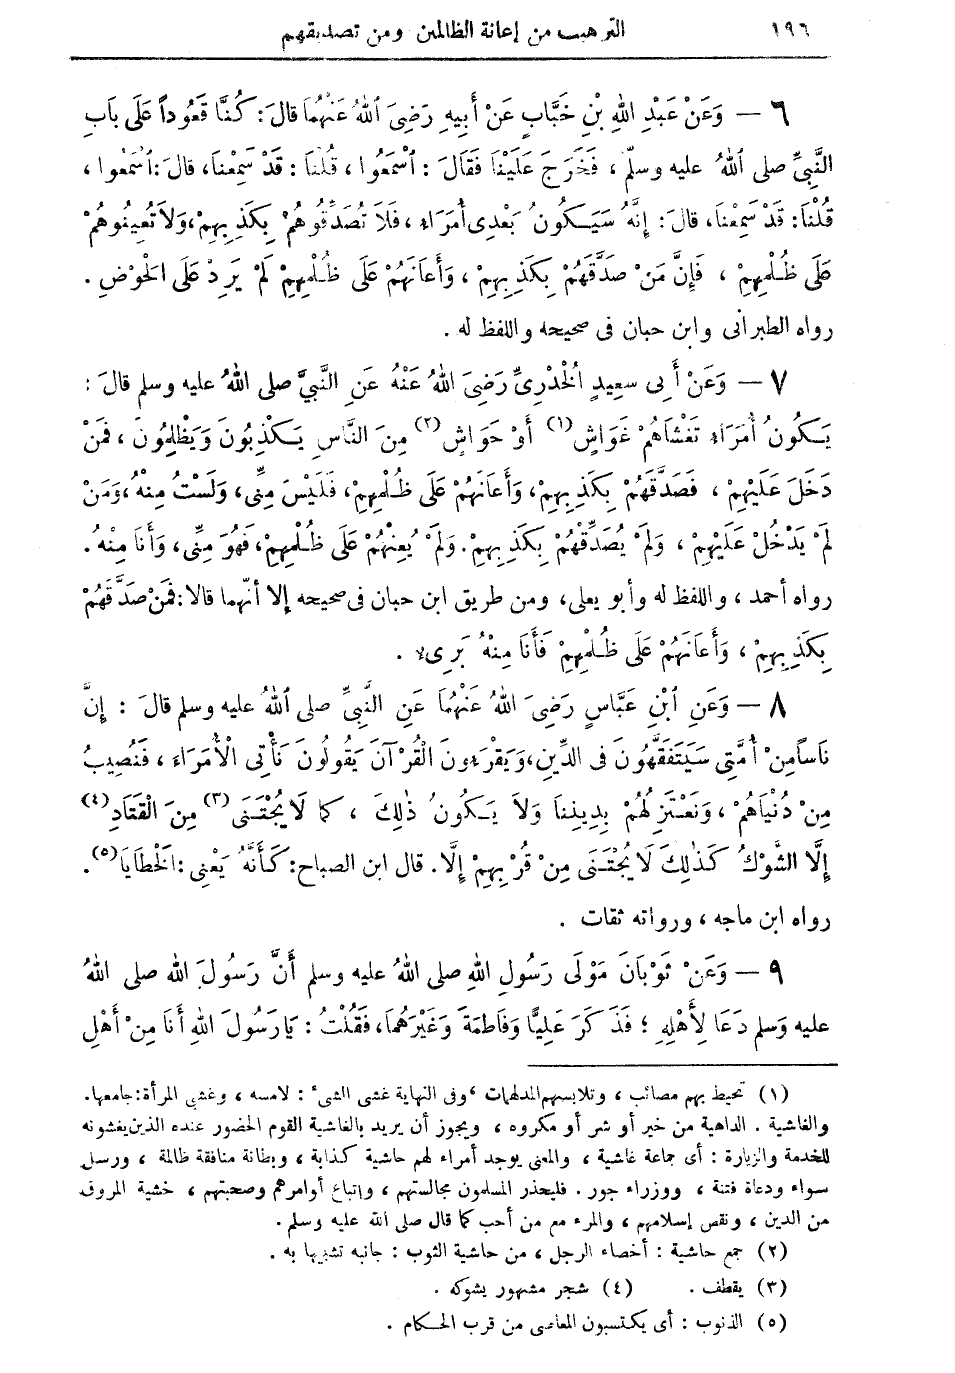 ١٩٦
الترهيب من إعانة الظالمين ومن تصديقهم
٦ — وَعَنْ عَبْدِ اللهِ بْنِ خَبَّابٍ عَنْ أَبِيهِ رَضِيَ اللهُ عَنْهُمَا قالَ: كُنَّا قُعُوداً عَلَى بَابِ
النَّبِيِّ صلى اللهُ عليه وسلّم ، فَخَرَجَ عَلَيْنَا فَقَالَ : ٱسْمَعُوا ، قُلْنَا : قَدْ سَمِعْنَا، قال :ٱسْمَعُوا ،
قُلْنَا: قَدْ سَمِعْنَا، قالَ: إِنَّهُ سَيَكُونُ بَعْدِى أُمَرَاءُ ، فَلَا تُصَدِّقُوهُمْ بِكَذِبِهِمْ، وَلَا تُعِينُوهُمْ
عَلَى ظُلْمِهِمْ ، فَإِنَّ مَنْ صَدَّقَهُمْ بِكَذِبِهِمْ ، وَأَعَانَهُمْ عَلَى ظُلْمِهِمْ لَمْ يَرِدْ عَلَى الْحَوْضِ .
رواه الطبرانى وابن حبان فى صحيحه واللفظ له .
٧ — وَعَنْ أَبِى سعِيدٍ الْخُدْرِىِّ رَضِيَ اللهُ عَنْهُ عَنِ النَّبِيِّ صلى اللهُ عليه وسلم قالَ :
يَكُونُ أُمَرَاءُ تَغْشَاهُمْ غَوَاشٍ (١) أَوْ حَوَاشٍ (٢) مِنَ النَّاسِ يَكْذِبُونَ وَيَظْلِمُونَ ، فَمَنْ
دَخَلَ عَلَيْهِمْ ، فَصَدَّقَهُمْ بِكَذِبِهِمْ، وَأَعَانَهُمْ عَلَى ظُلْمِهِمْ، فَلَيْسَ مِنِّى، وَلَسْتُ مِنْهُ، وَمَنْ
لَمْ يَدْخُلْ عَلَيْهِمْ ، وَلَمْ يُصَدِّقْهُمْ بِكَذِبِهِمْ. وَلَمْ يُعِنْهُمْ عَلَى ظُلْمِهِمْ، فَهُوَ مِنِّى، وَأَنَا مِنْهُ.
رواه أحمد ، واللفظ له وأبو يعلى، ومن طريق ابن حبان فى صحيحه إلا أنّهما قالا: فَمَنْ صَدَّقَهُمْ
بِكَذِبِهِمْ ، وَأَعَانَهُمْ عَلَى ظُلْمِهِمْ فَأَنَا مِنْهُ بَرِىءٌ .
٨ — وَعَنِ ٱبْنِ عَبَّاسٍ رَضِيَ اللهُ عَنْهُمَا عَنِ النَّبِيِّ صلى اللهُ عليه وسلم قالَ : إِنَّ
نَاساً مِنْ أُمَّتِى سَيَتَفَقَّهُونَ فى الدِّينِ، وَيَقْرَءونَ الْقُرْآنَ يَقُولُونَ نَأْتِى الْأُمَرَاءَ ، فَنُصِيبُ
مِنْ دُنْيَاهُمْ ، وَنَعْتَزِلُهُمْ بِدِينِنَا وَلاَ يَكُونُ ذٰلِكَ ، كما لَا يُجْتَنَى (٣) مِنَ الْقَتَادِ (٤)
إِلَّا الشَّوْكُ كَذٰلِكَ لَا يُجْتَنَى مِنْ قُرْبِهِمْ إِلَّا. قال ابن الصباح: كَأَنَّهُ يَعْنِى :الْخَطَايَا (٥).
رواه ابن ماجه ، ورواته ثقات .
٩ — وَعَنْ ثَوْبَانَ مَوْلَى رَسُولِ اللهِ صلى اللهُ عليه وسلم أَنَّ رَسُولَ اللهِ صلى اللهُ
عليه وَسلم دَعَا لِأَهْلِهِ ؛ فَذَكَرَ عَلِيًّا وَفَاطِمَةَ وَغَيْرَهُمَا، فَقُلْتُ : يَا رَسُولَ اللهِ أَنَا مِنْ أَهْلِ
(١) تحيط بهم مصائب ، وتلابسهم المدلهمات ‘وفى النهاية غشى الشىء : لامسه ، وغشى المرأة: جامعها.
والغاشية . الداهية من خير أو شر أو مكروه ، ويجوز أن يريد بالغاشية القوم الحضور عنده الذين يغشونه
للخدمة والزيارة : أى جماعة غاشية ، والمعنى يوجد أمراء لهم حاشية كذابة ، وبطانة منافقة ظالمة ، ورسل
سواء ودعاة فتنة ، ووزراء جور . فليحذر المسلمون مجالستهم ، واتباع أوامرهم وصحبتهم ، خشية المروق
من الدين ، ونقص إسلامهم ، والمرء مع من أحب كما قال صلى الله عليه وسلم.
(٢) جمع حاشية : أخصاء الرجل ، من حاشية الثوب : جانبه تشبيها به .
(٣) يقطف . (٤) شجر مشهور يشوكه .
(٥) الذنوب : أى يكتسبون المعاصى من قرب الحكام .